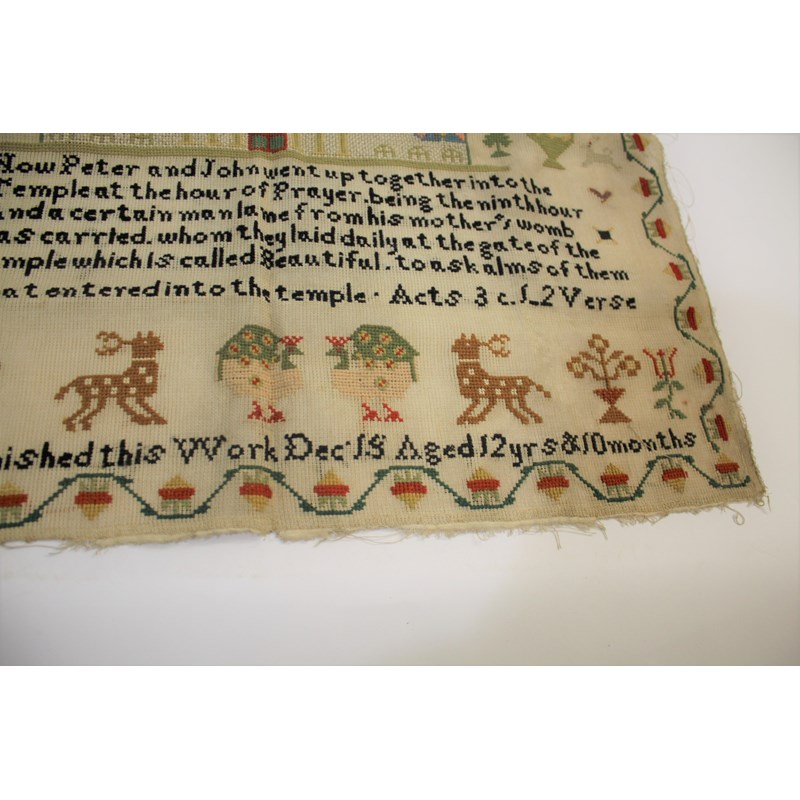 Now Peter and John went up together into the
Temple at the hour of Prayer. being the ninth hour
and a certain man lame from his mother's womb
as carried. whom they laid daily at the gate of the
mple which is called Beautiful. to ask alms of them
at entered into the temple. Acts 3 c. 1.2 Verse
ished this Work Dec 15 Aged 12 yrs & 10 months